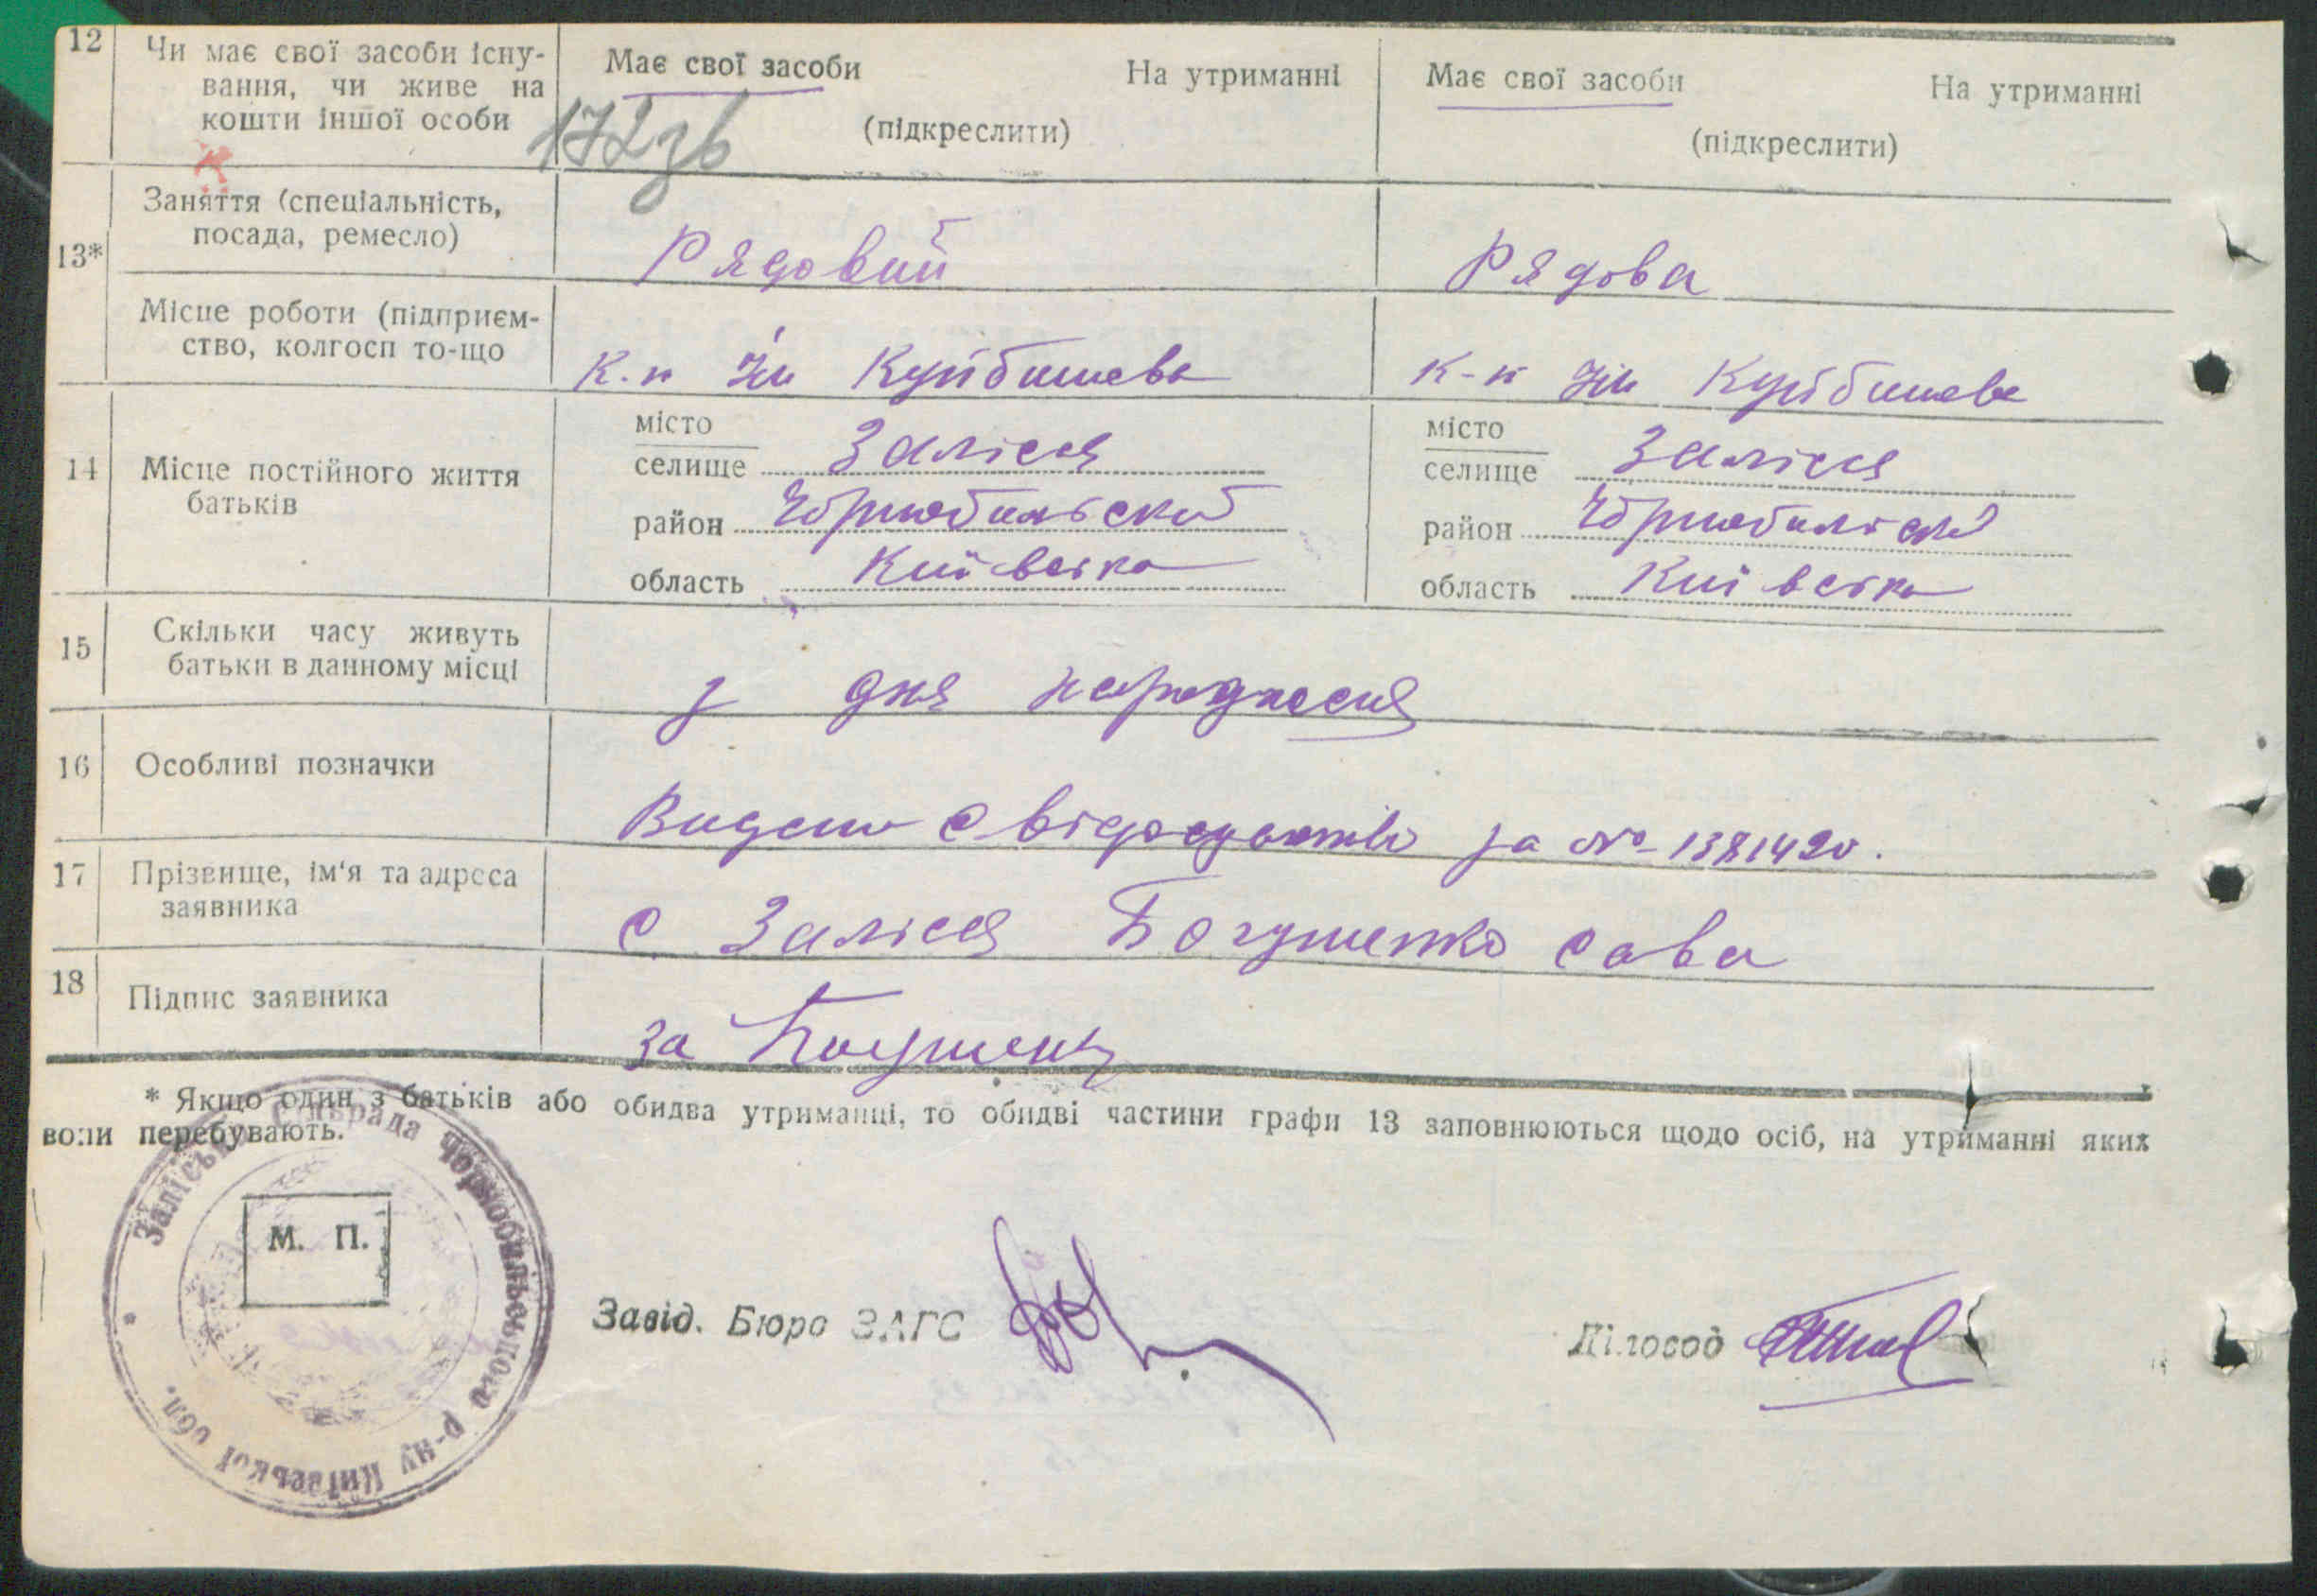 12 Чи має свої засоби існу-
вання, чи живе на
кошти іншої особи
Має свої засоби На утриманні
(підкреслити)
Має свої засоби На утриманні
(підкреслити)
172зв
13* Заняття (спеціальність,
посада, ремесло)
Рядовий
Рядова
Місце роботи (підприєм-
ство, колгосп то-що
К-п Ім Куйбишева
К-п Ім Куйбишева
14 Місце постійного життя
батьків
місто
селище Залісся
район Чорнобильский
область Київська
місто
селище Залісся
район Чорнобильский
область Київська
15 Скільки часу живуть
батьки в данному місці
з дня народження
16 Особливі позначки
Видано Свідоцтво за № 1381420.
17 Прізвище, ім'я та адреса
заявника
с Залісся Богушенко Сава
18 Підпис заявника
за
* Якщо один з батьків або обидва утриманці, то обидві частини графи 13 заповнюються щодо осіб, на утриманні яких
вони перебувають.
Заліська сільрада Чорнобильського р-ну Київської обл.
М. П.
Завід. Бюро ЗАГС
Діловод